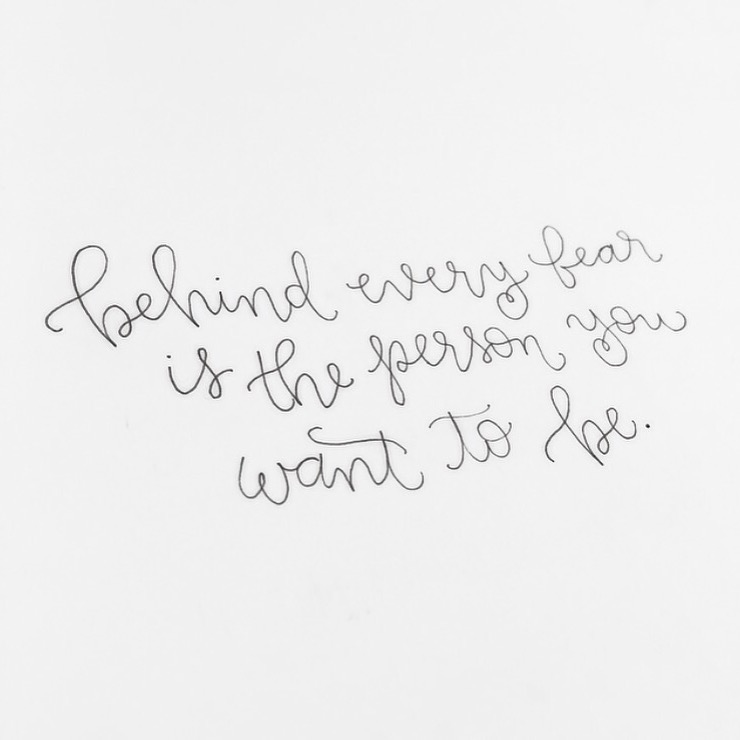 behind every fear
is the person you
want to be.